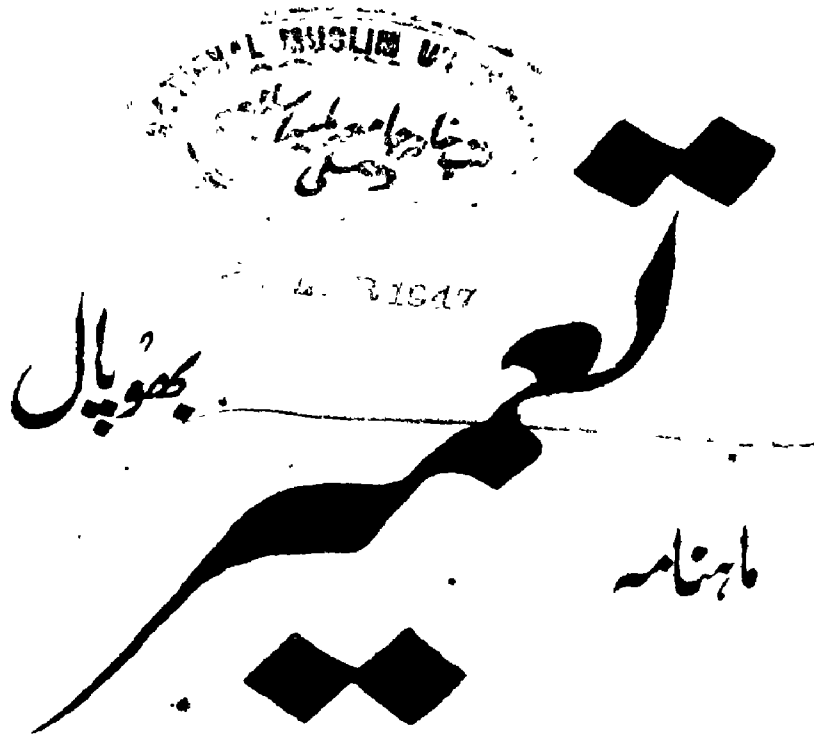 NATIONAL MUSLIM
کتب خانہ جامعہ ملیہ اسلامیہ
دہلی
1947
ماہنامہ
تعمیر
بھوپال